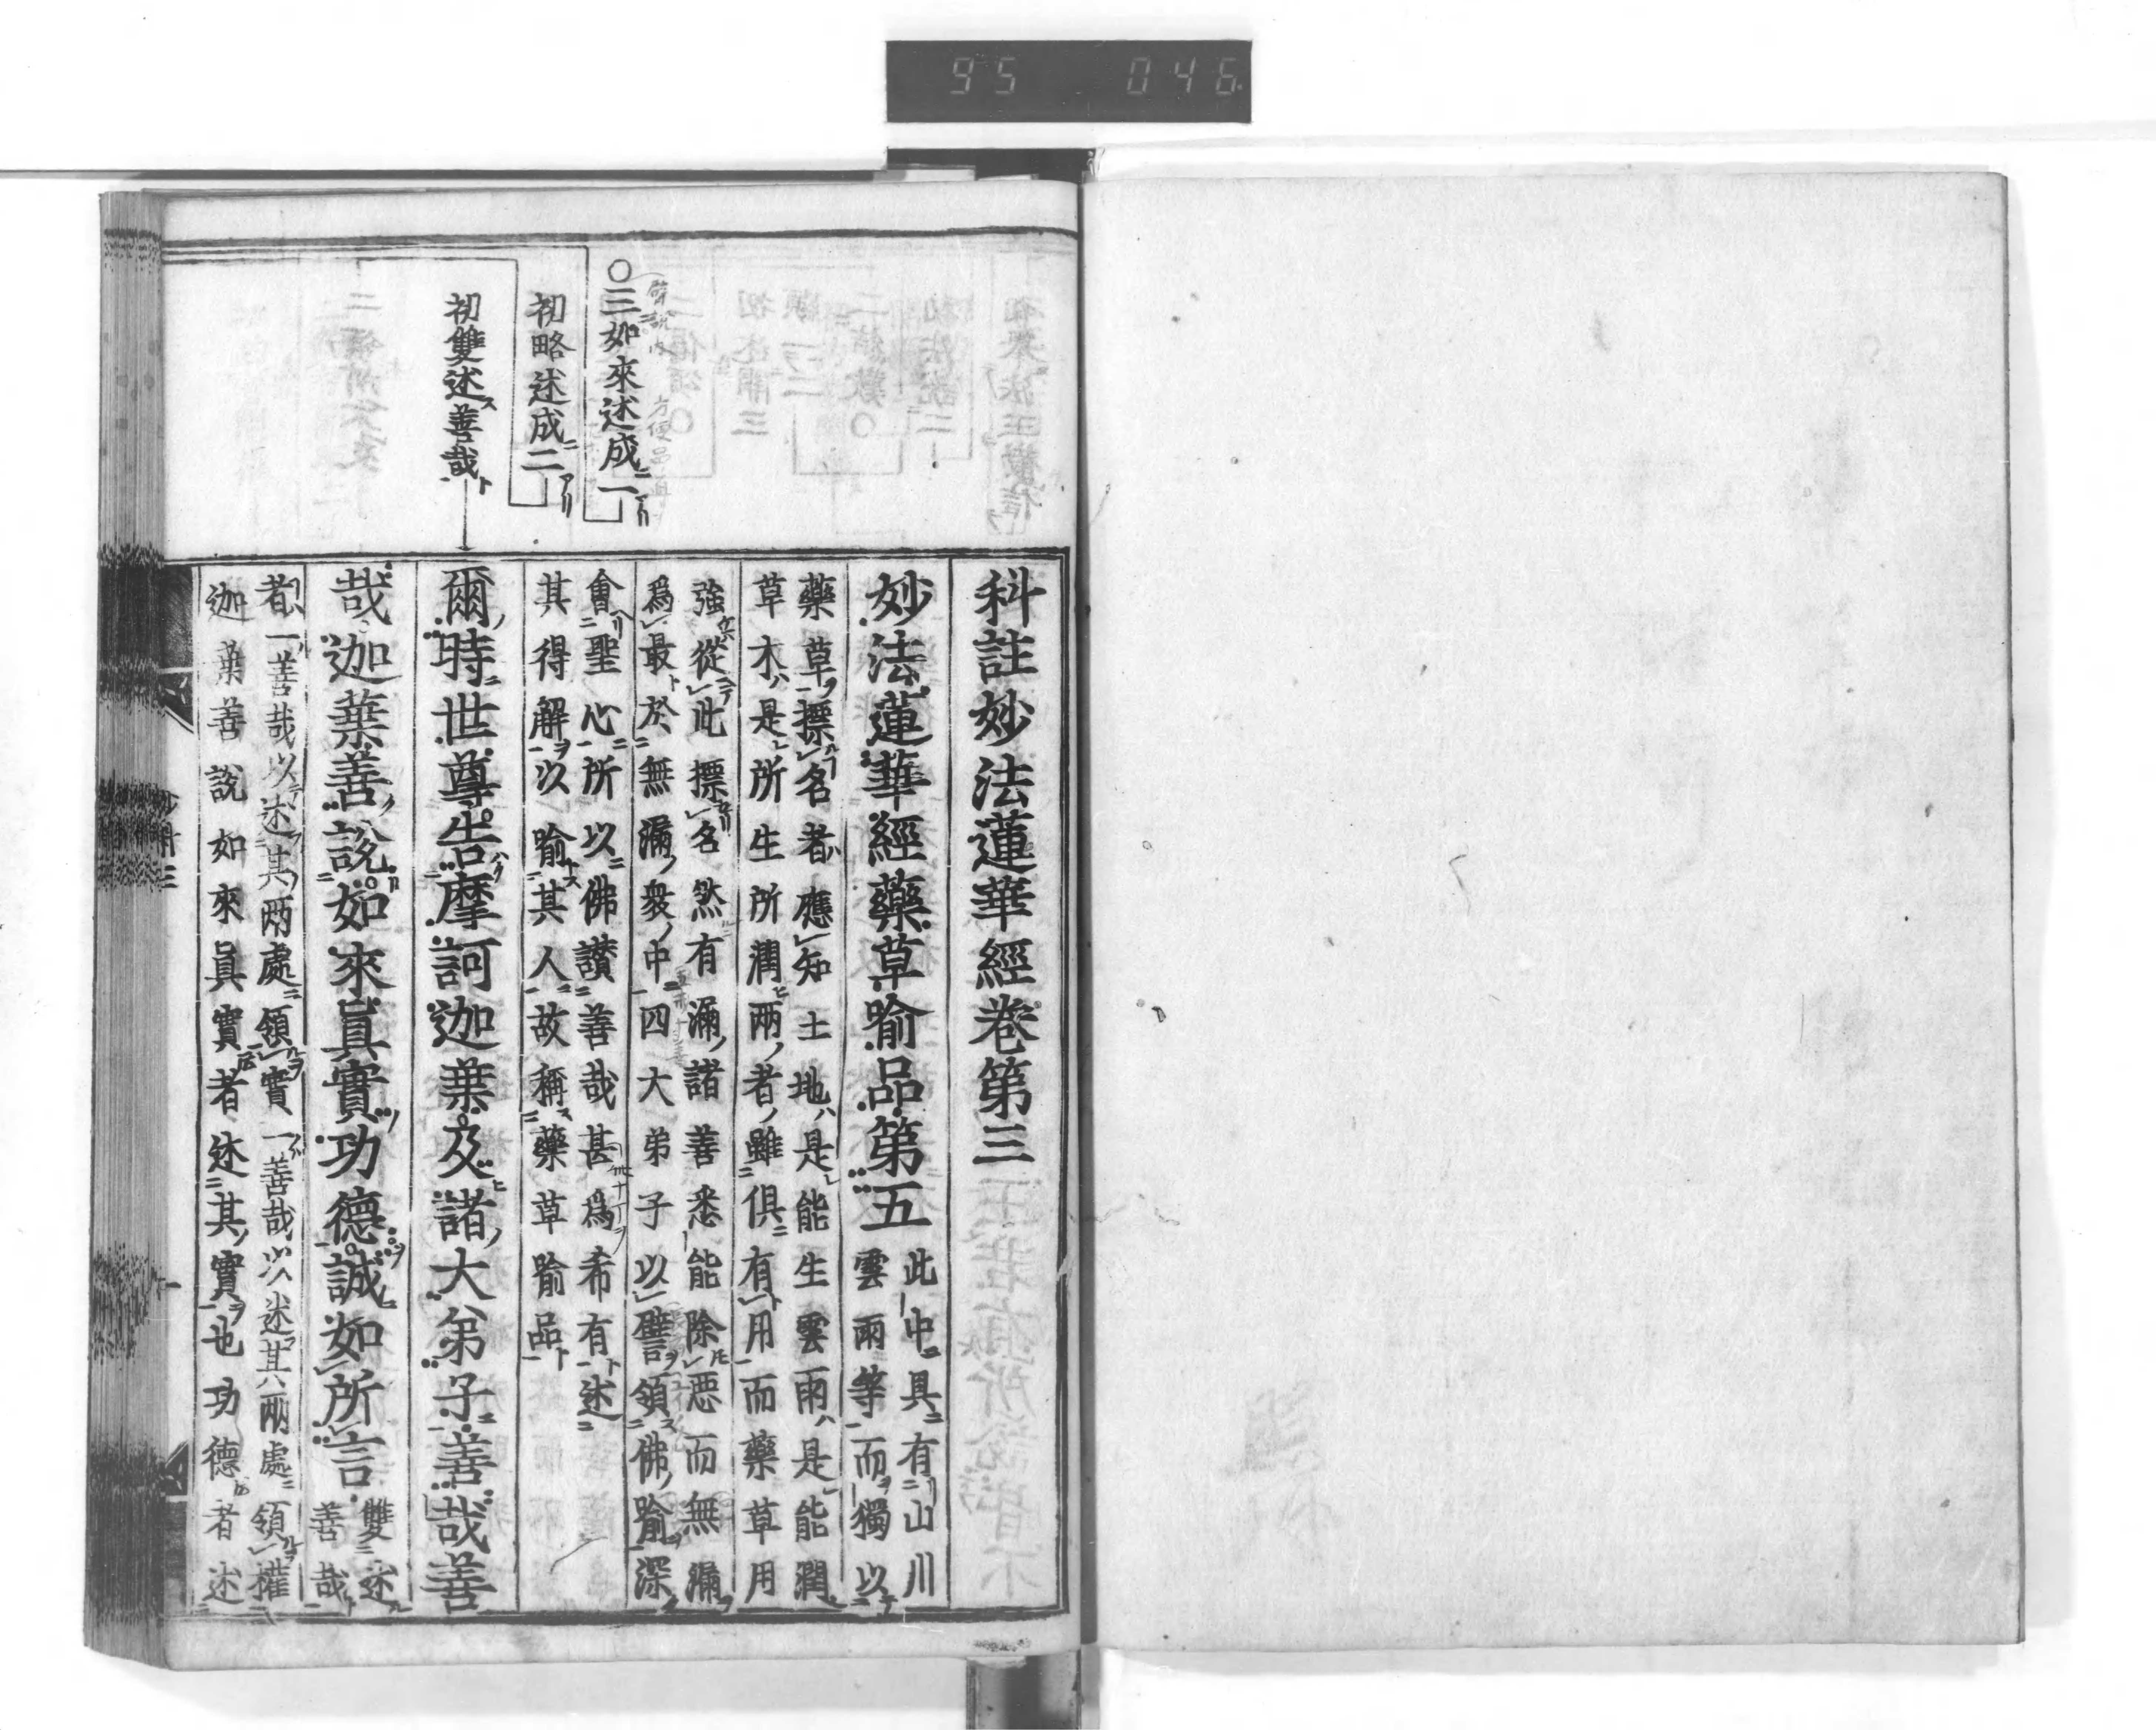 95 046
〇三如來述成二
初略述成二
初雙述善哉
科註妙法蓮華經卷第三
妙法蓮華經藥草喻品第五
此中具有山川
雲雨等而獨以
藥草摽名者應知土地是能生雲雨是能潤
草木是所生所潤兩者雖俱有用而藥草用
強從此摽名然有漏諸善悉能除惡而無漏
爲最於無漏衆中四大弟子以譬領佛喻深
會聖心所以佛讃善哉甚爲希有述
其得解以喻其人故稱藥草喻品
爾時世尊告摩訶迦葉及諸大弟子善哉善
哉迦葉善說如來眞實功德誠如所言
雙述
善哉
者一善哉以述其兩處領實一善哉以述其兩處領權
迦葉善說如來眞實者述其實也功德者述